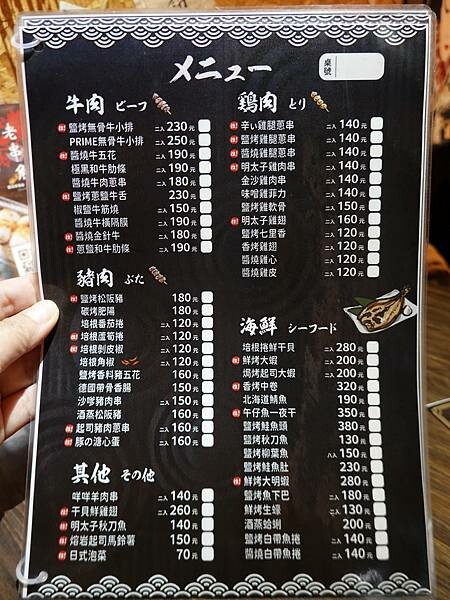 メニュー
桌號
牛肉 ビーフ
推! 鹽烤無骨牛小排 二入 230元
PRIME無骨牛小排 二入 250元
推! 醬燒牛五花 二入 190元
極黑和牛肋條 二入 190元
醬燒牛肉蔥串 二入 180元
推! 鹽烤蔥鹽牛舌 230元
椒鹽牛筋燒 二入 150元
醬燒牛橫隔膜 二入 190元
推! 醬燒金針牛 二入 180元
推! 蔥鹽和牛肋條 二入 190元
豬肉 ぶた
推! 鹽烤松阪豬 180元
碳烤肥腸 180元
培根番茄捲 二入 120元
推! 培根蘆筍捲 二入 120元
推! 培根剝皮椒 二入 120元
培根角椒 二入 120元
鹽烤香料豬五花 160元
德國帶骨香腸 150元
沙嗲豬肉串 二入 150元
酒蒸松阪豬 160元
推! 起司豬肉蔥串 二入 160元
推! 豚の溏心蛋 二入 160元
其他 その他
咩咩羊肉串 二入 140元
推! 干貝鮮雞翅 二入 260元
推! 明太子秋刀魚 140元
推! 熔岩起司馬鈴薯 150元
推! 日式泡菜 70元
鶏肉 とり
推! 辛い雞腿蔥串 二入 140元
推! 鹽烤雞腿蔥串 二入 140元
推! 醬燒雞腿蔥串 二入 140元
推! 明太子雞肉串 二入 140元
金沙雞肉串 二入 140元
味噌雞菲刀 二入 140元
鹽烤雞軟骨 二入 150元
推! 明太子雞翅 二入 160元
鹽烤七里香 二入 120元
香烤雞翅 二入 120元
醬燒雞心 二入 120元
醬燒雞皮 二入 120元
海鮮 シーフード
培根捲鮮干貝 二入 280元
推! 鮮烤大蝦 二入 200元
焗烤起司大蝦 二入 200元
推! 香烤中卷 320元
北海道鯖魚 190元
推! 午仔魚一夜干 350元
鹽烤鮭魚頭 380元
鹽烤秋刀魚 130元
鹽烤柳葉魚 八入 150元
鹽烤鮭魚肚 230元
推! 鮮烤大明蝦 280元
鹽烤魚下巴 二入 180元
鮮烤生蠔 二入 130元
酒蒸蛤蜊 200元
鹽烤白帶魚捲 二入 140元
醬燒白帶魚捲 二入 140元